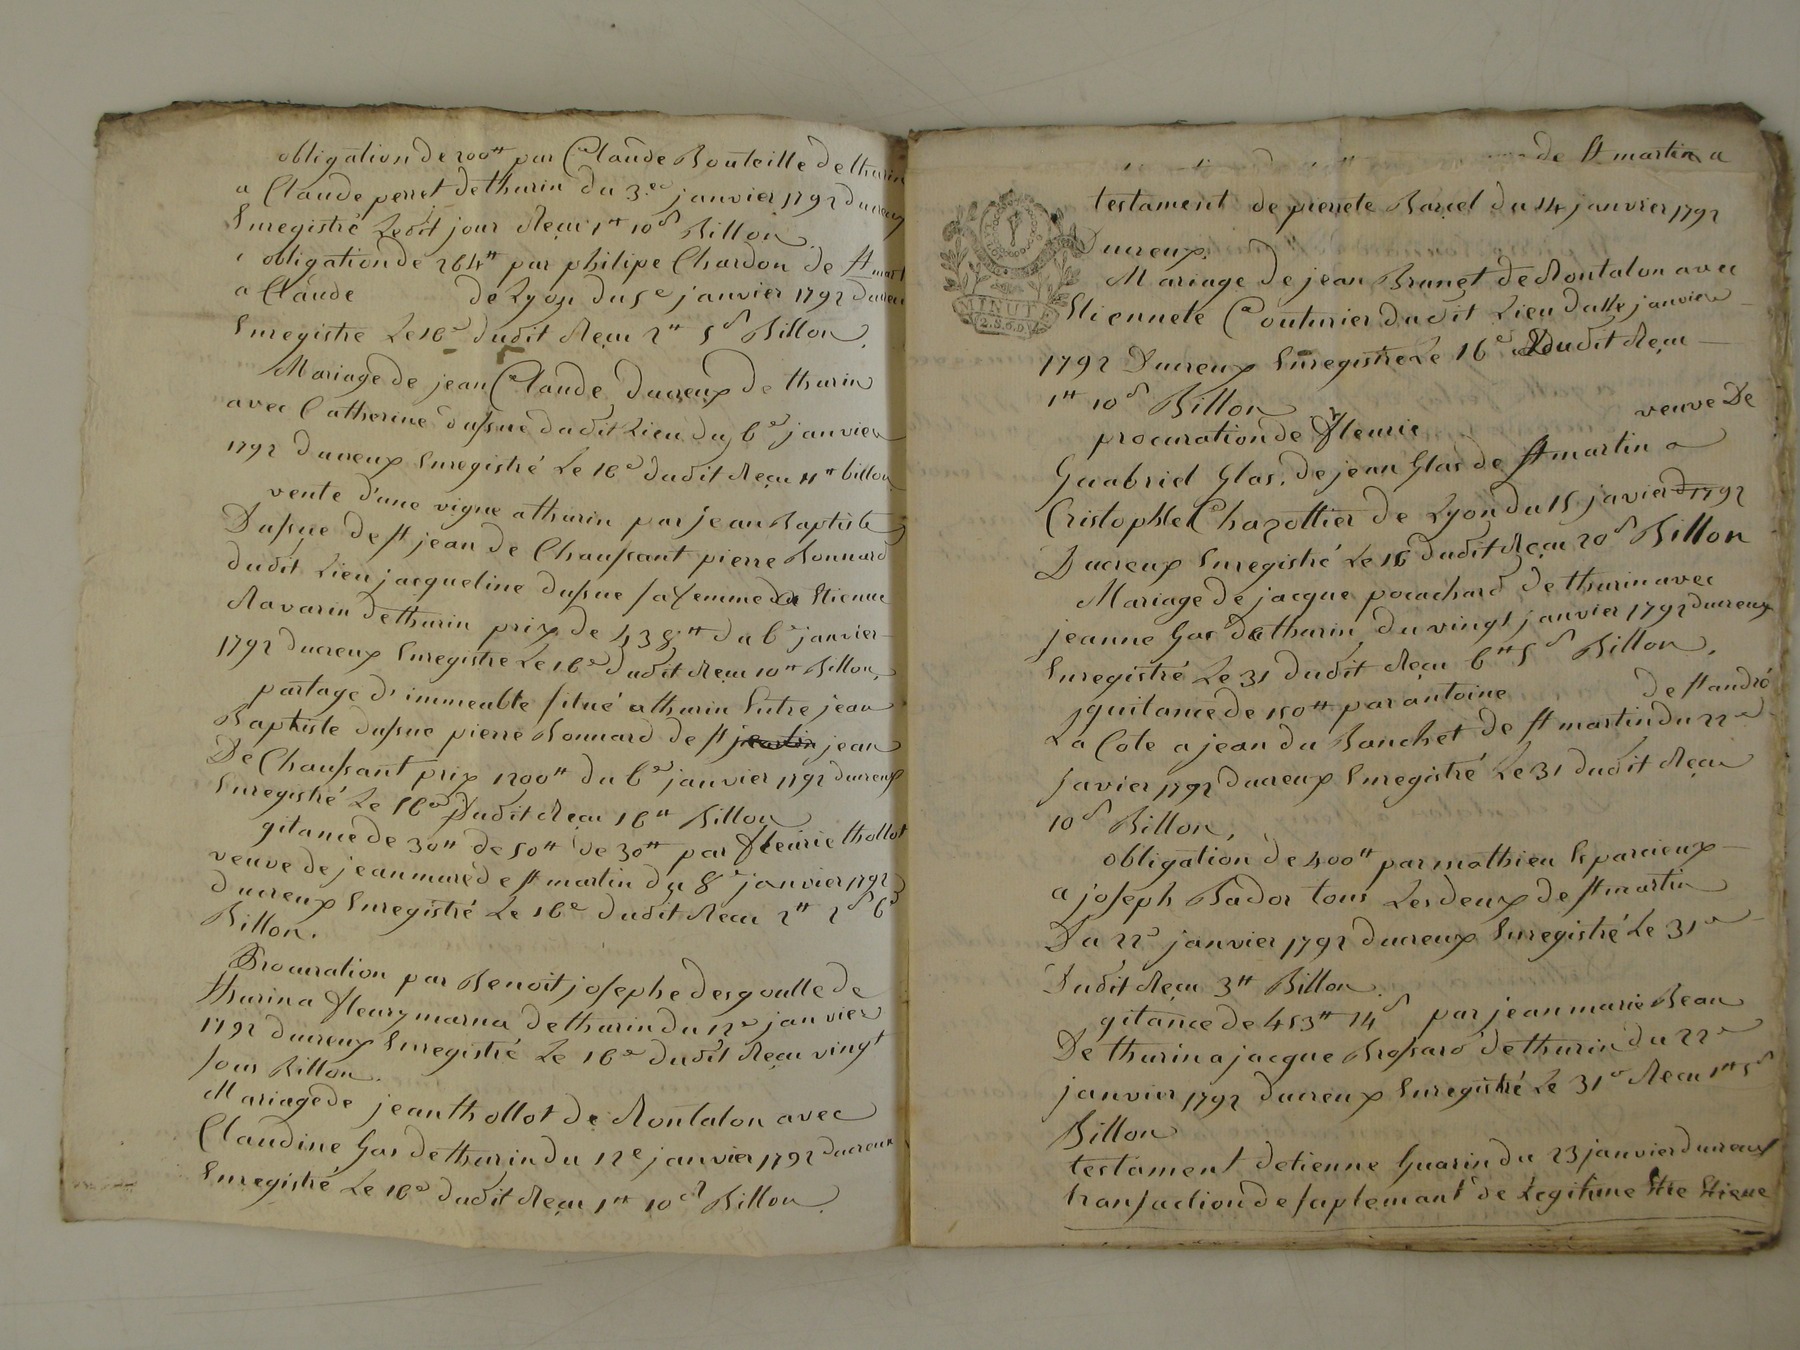 obligation de 200tt par Claude Bouteille de thurin
a Claude perret de thurin du 3.e janvier 1792 ducreux
Enregistré Ledit jour Reçu 1tt 10s Billon
obligation de 264tt par philipe Chardon de st mart
a Claude de Lyon du 5e janvier 1792 ducreu
Enregistré Le 16e dudit Reçu 2tt 5s Billon
Mariage de jean Claude ducreux de thurin
avec Catherine dufsue dudit Lieu du 6e janvier
1792 ducreux Enregistré Le 16e dudit Reçu 4tt billon
vente d'une vigne a thurin par jean Baptiste
Dufsue de st jean de Chaufsant pierre Bonnard
dudit Lieu jacqueline dufsue sa femme de Etienne
Ravarin de thurin prix de 438tt du 6e janvier
1792 ducreux Enregistré Le 16e dudit Reçu 10tt Billon
partage d'immeuble situé a thurin Entre jean
Baptiste dufsue pierre Bonnard de st jean
De Chaufsant prix 1200tt du 6e janvier 1792 ducreux
Enregistré Le 16e Dudit Reçu 16tt Billon
gitance de 30tt de 50tt de 30tt par fleurie thollot
veuve de jean maré de st martin du 8e janvier 1792
ducreux Enregistré Le 16e dudit Reçu 2tt 2s 6d
Billon.
Procuration par Benoit josephe desgoutte de
thurin a fleury marna de thurin du 12e janvier
1792 ducreux Enregistré Le 16e dudit Reçu vingt
sous Billon.
Mariage de jean thollot de Rontalon avec
Claudine Gas de thurin du 12e janvier 1792 ducreux
Enregistré Le 16e dudit Reçu 1tt 10s Billon
de st martin a
testament de pierrete Barcel du 14 janvier 1792
Ducreux.
Mariage de jean Brunet de Rontalon avec
Etiennete Couturier dudit Lieu du 14e janvier
MINUTE
1792 Ducreux Enregistré Le 16e dudit Reçu
1tt 10s Billon
procuration de fleurie veuve De
Guabriel Glas. de jean Glas de st martin a
Cristophle Chazottier de Lyon du 15 javier 1792
Ducreux Enregistré Le 16 dudit Reçu 20s Billon
Mariage de jacque pocachard de thurin avec
jeanne Gas de thurin du vingt janvier 1792 ducreux
Enregistré Le 31 dudit Reçu 6tt 5s Billon.
quitance de 150tt par antoine de st andré
La Cote a jean du Banchet de st martin du 22e
javier 1792 ducreux Enregistré Le 31 dudit Reçu
10s Billon.
obligation de 400tt par mathieu Eparcieux
a joseph Bador tous Les deux de st martin
Du 22e janvier 1792 ducreux Enregistré Le 31e
Dudit Reçu 3tt Billon
gitance de 453tt 14s par jean marie Beau
De thurin a jacque Brofsard de thurin du 22e
janvier 1792 ducreux Enregistré Le 31e Reçu 1tt 5s
Billon
testament detienne Guarin du 23 janvier ducreux
transaction de saplemant de Legitime Etienne